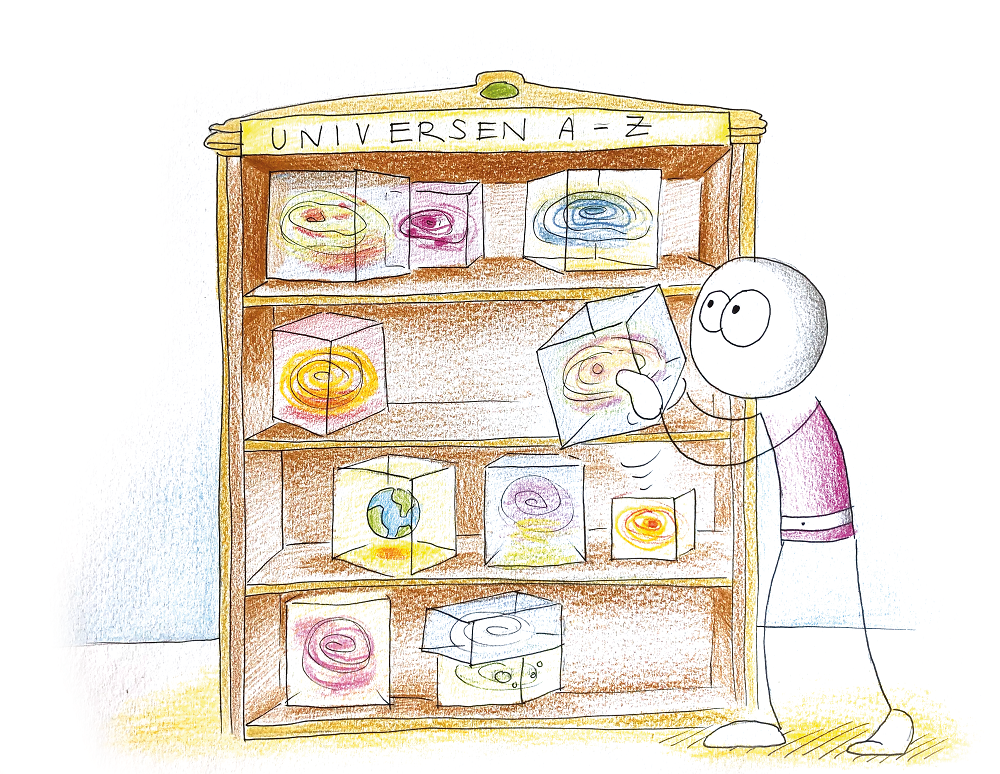 UNIVERSEN A = Z